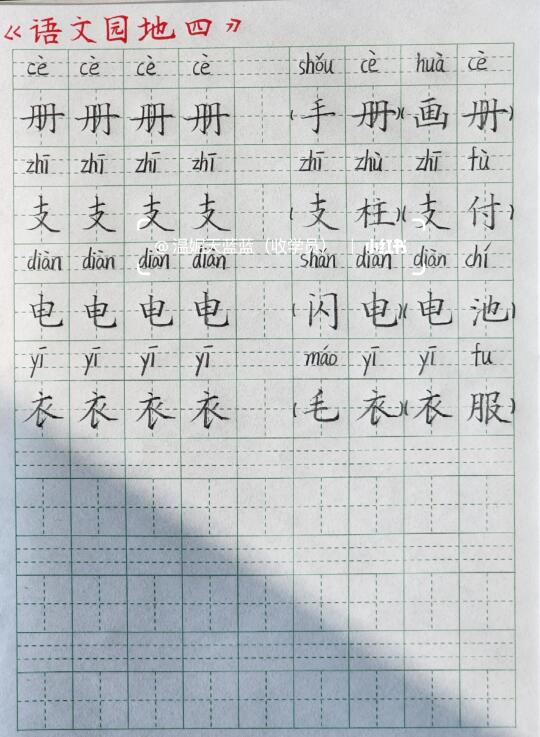 《语文园地四》
cè cè cè cè shǒu cè huà cè
册 册 册 册 (手 册)(画 册)
zhī zhī zhī zhī zhī zhù zhī fù
支 支 支 支 (支 柱)(支 付)
@温妮天蓝蓝(收学员) | 小红书
diàn diàn diàn diàn shǎn diàn diàn chí
电 电 电 电 (闪 电)(电 池)
yī yī yī yī máo yī yī fu
衣 衣 衣 衣 (毛 衣)(衣 服)